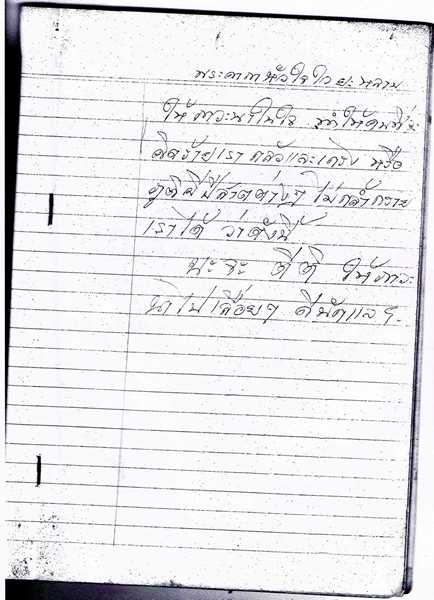 พระคาถาหัวใจไวยะหลาม
ให้ภาวนาในใจ ทำให้คนที่จะ
คิดร้ายเรา กลัวและเกรง หรือ
ภูติผีปีศาจต่างๆ ไม่กล้ำกราย
เราได้ ว่าดังนี้
นะจะ ติติ ให้ภาวะ
นาไปเรื่อยๆ ดีนักแล ฯ